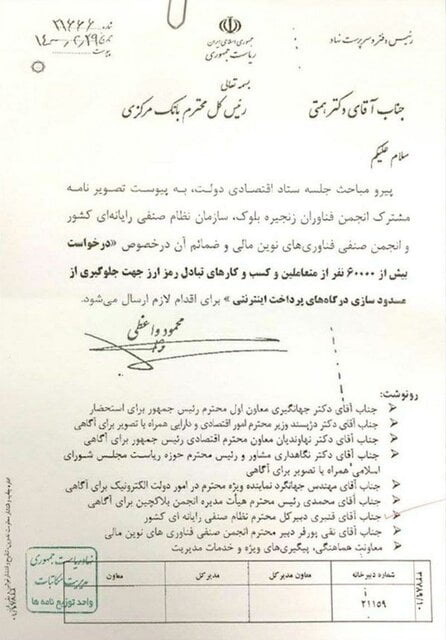 رئیس دفتر و سرپرست نهاد
جمهوری اسلامی ایران
ریاست جمهوری
شماره ۲۱۶۶۶
تاریخ ۱۴۰۰/۲/۲۹
پیوست
بسمه تعالی
جناب آقای دکتر همتی
رئیس کل محترم بانک مرکزی
سلام علیکم
پیرو مباحث جلسه ستاد اقتصادی دولت، به پیوست تصویر نامه
مشترک انجمن فناوران زنجیره بلوک، سازمان نظام صنفی رایانه‌ای کشور
و انجمن صنفی فناوری‌های نوین مالی و ضمائم آن درخصوص «درخواست
بیش از ۶۰۰۰۰ نفر از متعاملین و کسب و کارهای تبادل رمز ارز جهت جلوگیری از
مسدود سازی درگاه‌های پرداخت اینترنتی» برای اقدام لازم ارسال می‌شود.
محمود واعظی
رونوشت:
➤ جناب آقای دکتر جهانگیری معاون اول محترم رئیس جمهور برای استحضار
➤ جناب آقای دکتر دژپسند وزیر محترم امور اقتصادی و دارایی همراه با تصویر برای آگاهی
➤ جناب آقای دکتر نهاوندیان معاون محترم اقتصادی رئیس جمهور برای آگاهی
➤ جناب آقای دکتر نگاهداری مشاور و رئیس محترم حوزه ریاست مجلس شورای
اسلامی همراه با تصویر برای آگاهی
➤ جناب آقای مهندس جهانگرد نماینده ویژه محترم در امور دولت الکترونیک برای آگاهی
➤ جناب آقای محمدی رئیس محترم هیأت مدیره انجمن بلاکچین برای آگاهی
➤ جناب آقای قنبری دبیرکل محترم نظام صنفی رایانه ای کشور
➤ جناب آقای نقی پورفر دبیر محترم انجمن صنفی فناوری های نوین مالی
➤ معاونت هماهنگی، پیگیری‌های ویژه و خدمات مدیریت
شماره دبیرخانه
معاون مدیرکل
مدیرکل
معاون
۲۱۱۵۹
نهاد ریاست جمهوری
مدیریت مکاتبات
واحد توزیع نامه ها